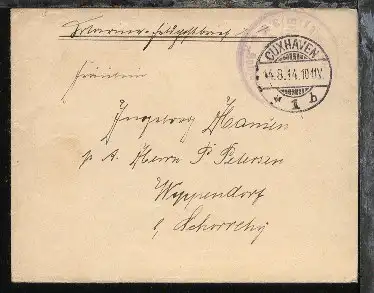 Marine-Feldpostbrief
CUXHAVEN
8.14.10-11V.
* 1 b
Fräulein
Ingeborg Hansen
p. A. Herrn P. Petersen
Wippendorf